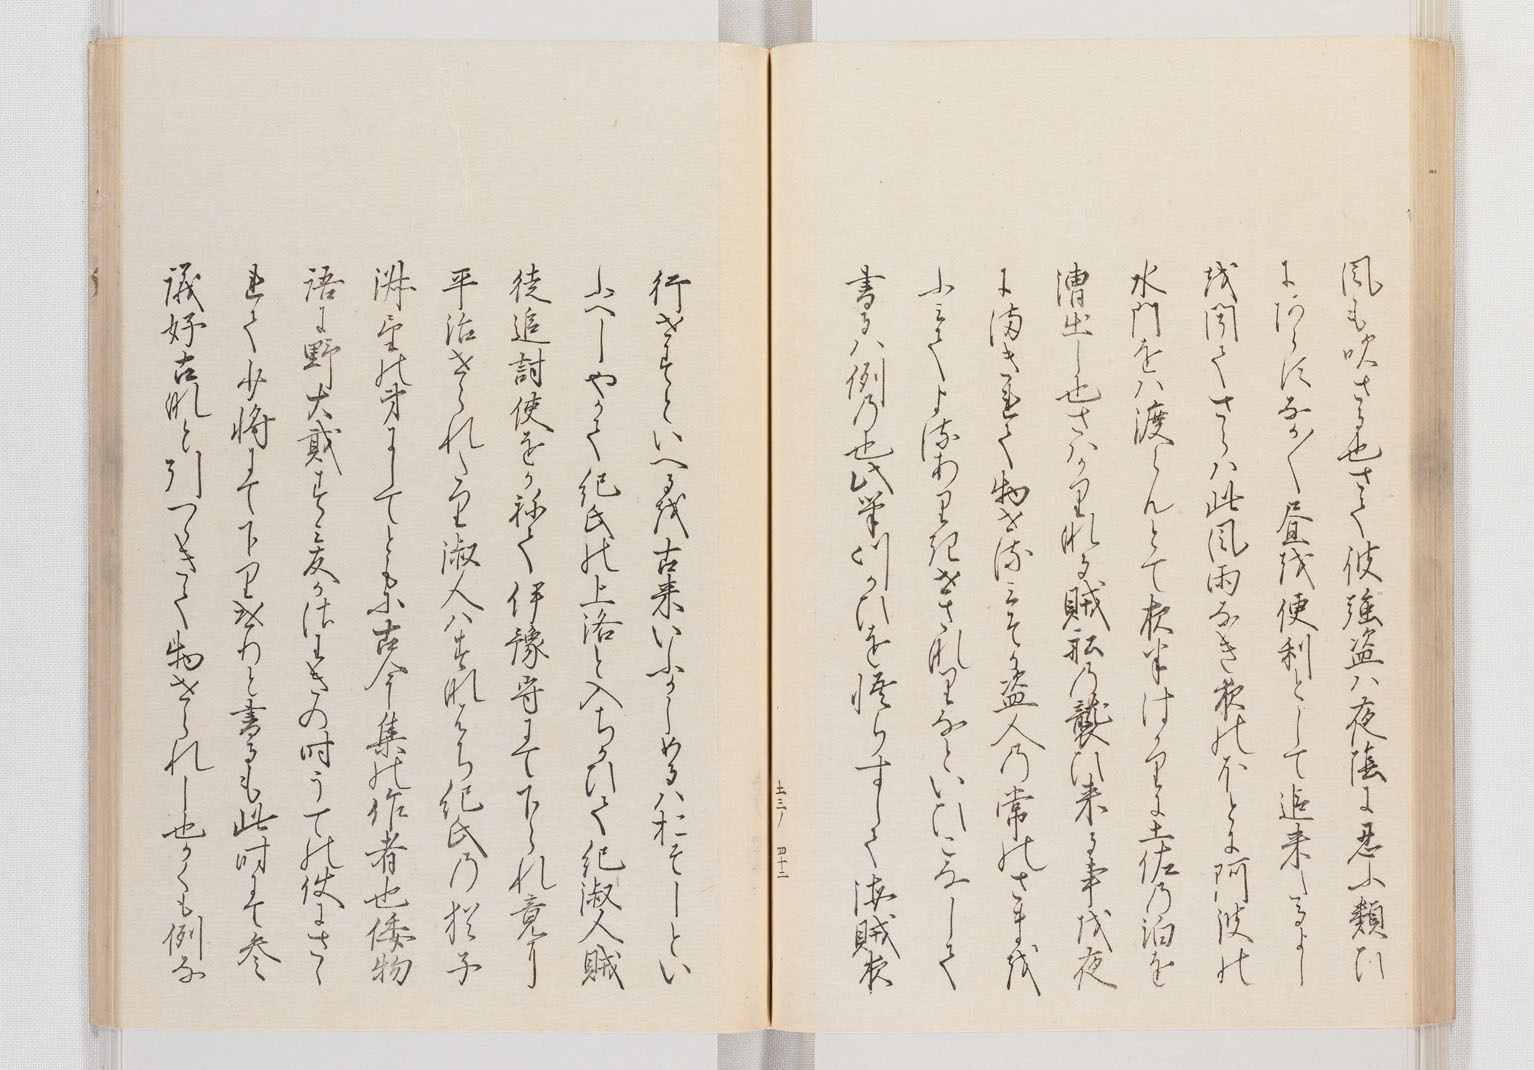 風も吹さる也さて彼強盗ハ夜陰に忍ふ類ひ
にあらすなか〱昼を便利として追来たるよし
を聞てさらハ此風雨なき夜のほとに阿波の
水門をハ渡らんとて夜半はかりに土佐の泊を
漕出し也さハかりなる賊船の襲ひ来る事を夜
に満きれて物せるそ盗人の常のさまを
ふみてよめありけさなりなといひこなして
書るハ例の也此筆つかひを悟らすして海賊夜
土三ノ 四十二
行せすといへるを古来いふかしめるハおそしとい
ふへしやかて紀氏の上洛と入ちかひて紀淑人賊
徒追討使をかねて伊豫守にて下られ竟に
平治せられたり淑人ハすなはち紀氏の猶子
淑望の弟にしてともに古今集の作者也倭物
語に野大貳すみ友かはききの時うての使にさゝ
れて少将にて下りけりと書るも此時にて参
議好古なと引つきて物せられし也かくも例な